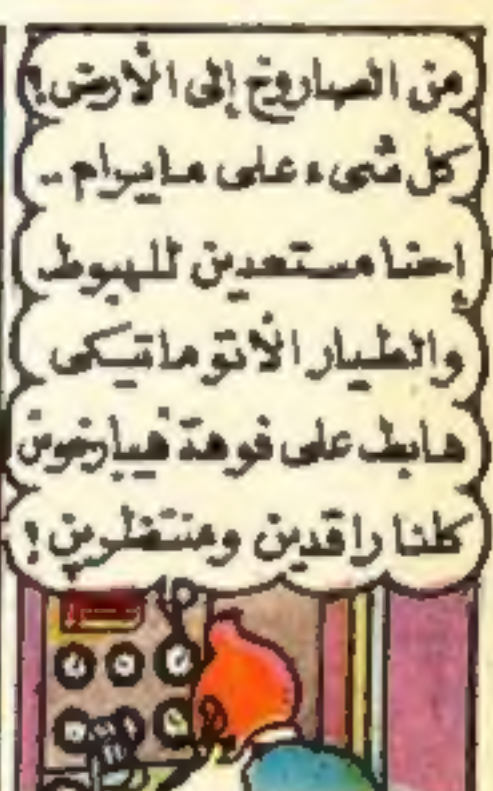 من الصاروخ إلى الأرض!
كل شىء على مايرام ..
إحنا مستعدين للهبوط
والطيار الأتوماتيكى
هابط على فوهة هيبارخوس
كلنا راقدين ومنتظرين!